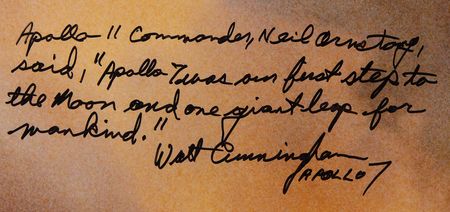 Apollo 11 Commander, Neil Armstrong,
said, "Apollo 7 was our first step to
the Moon and one giant leap for
mankind."
Walt Cunningham
APOLLO 7